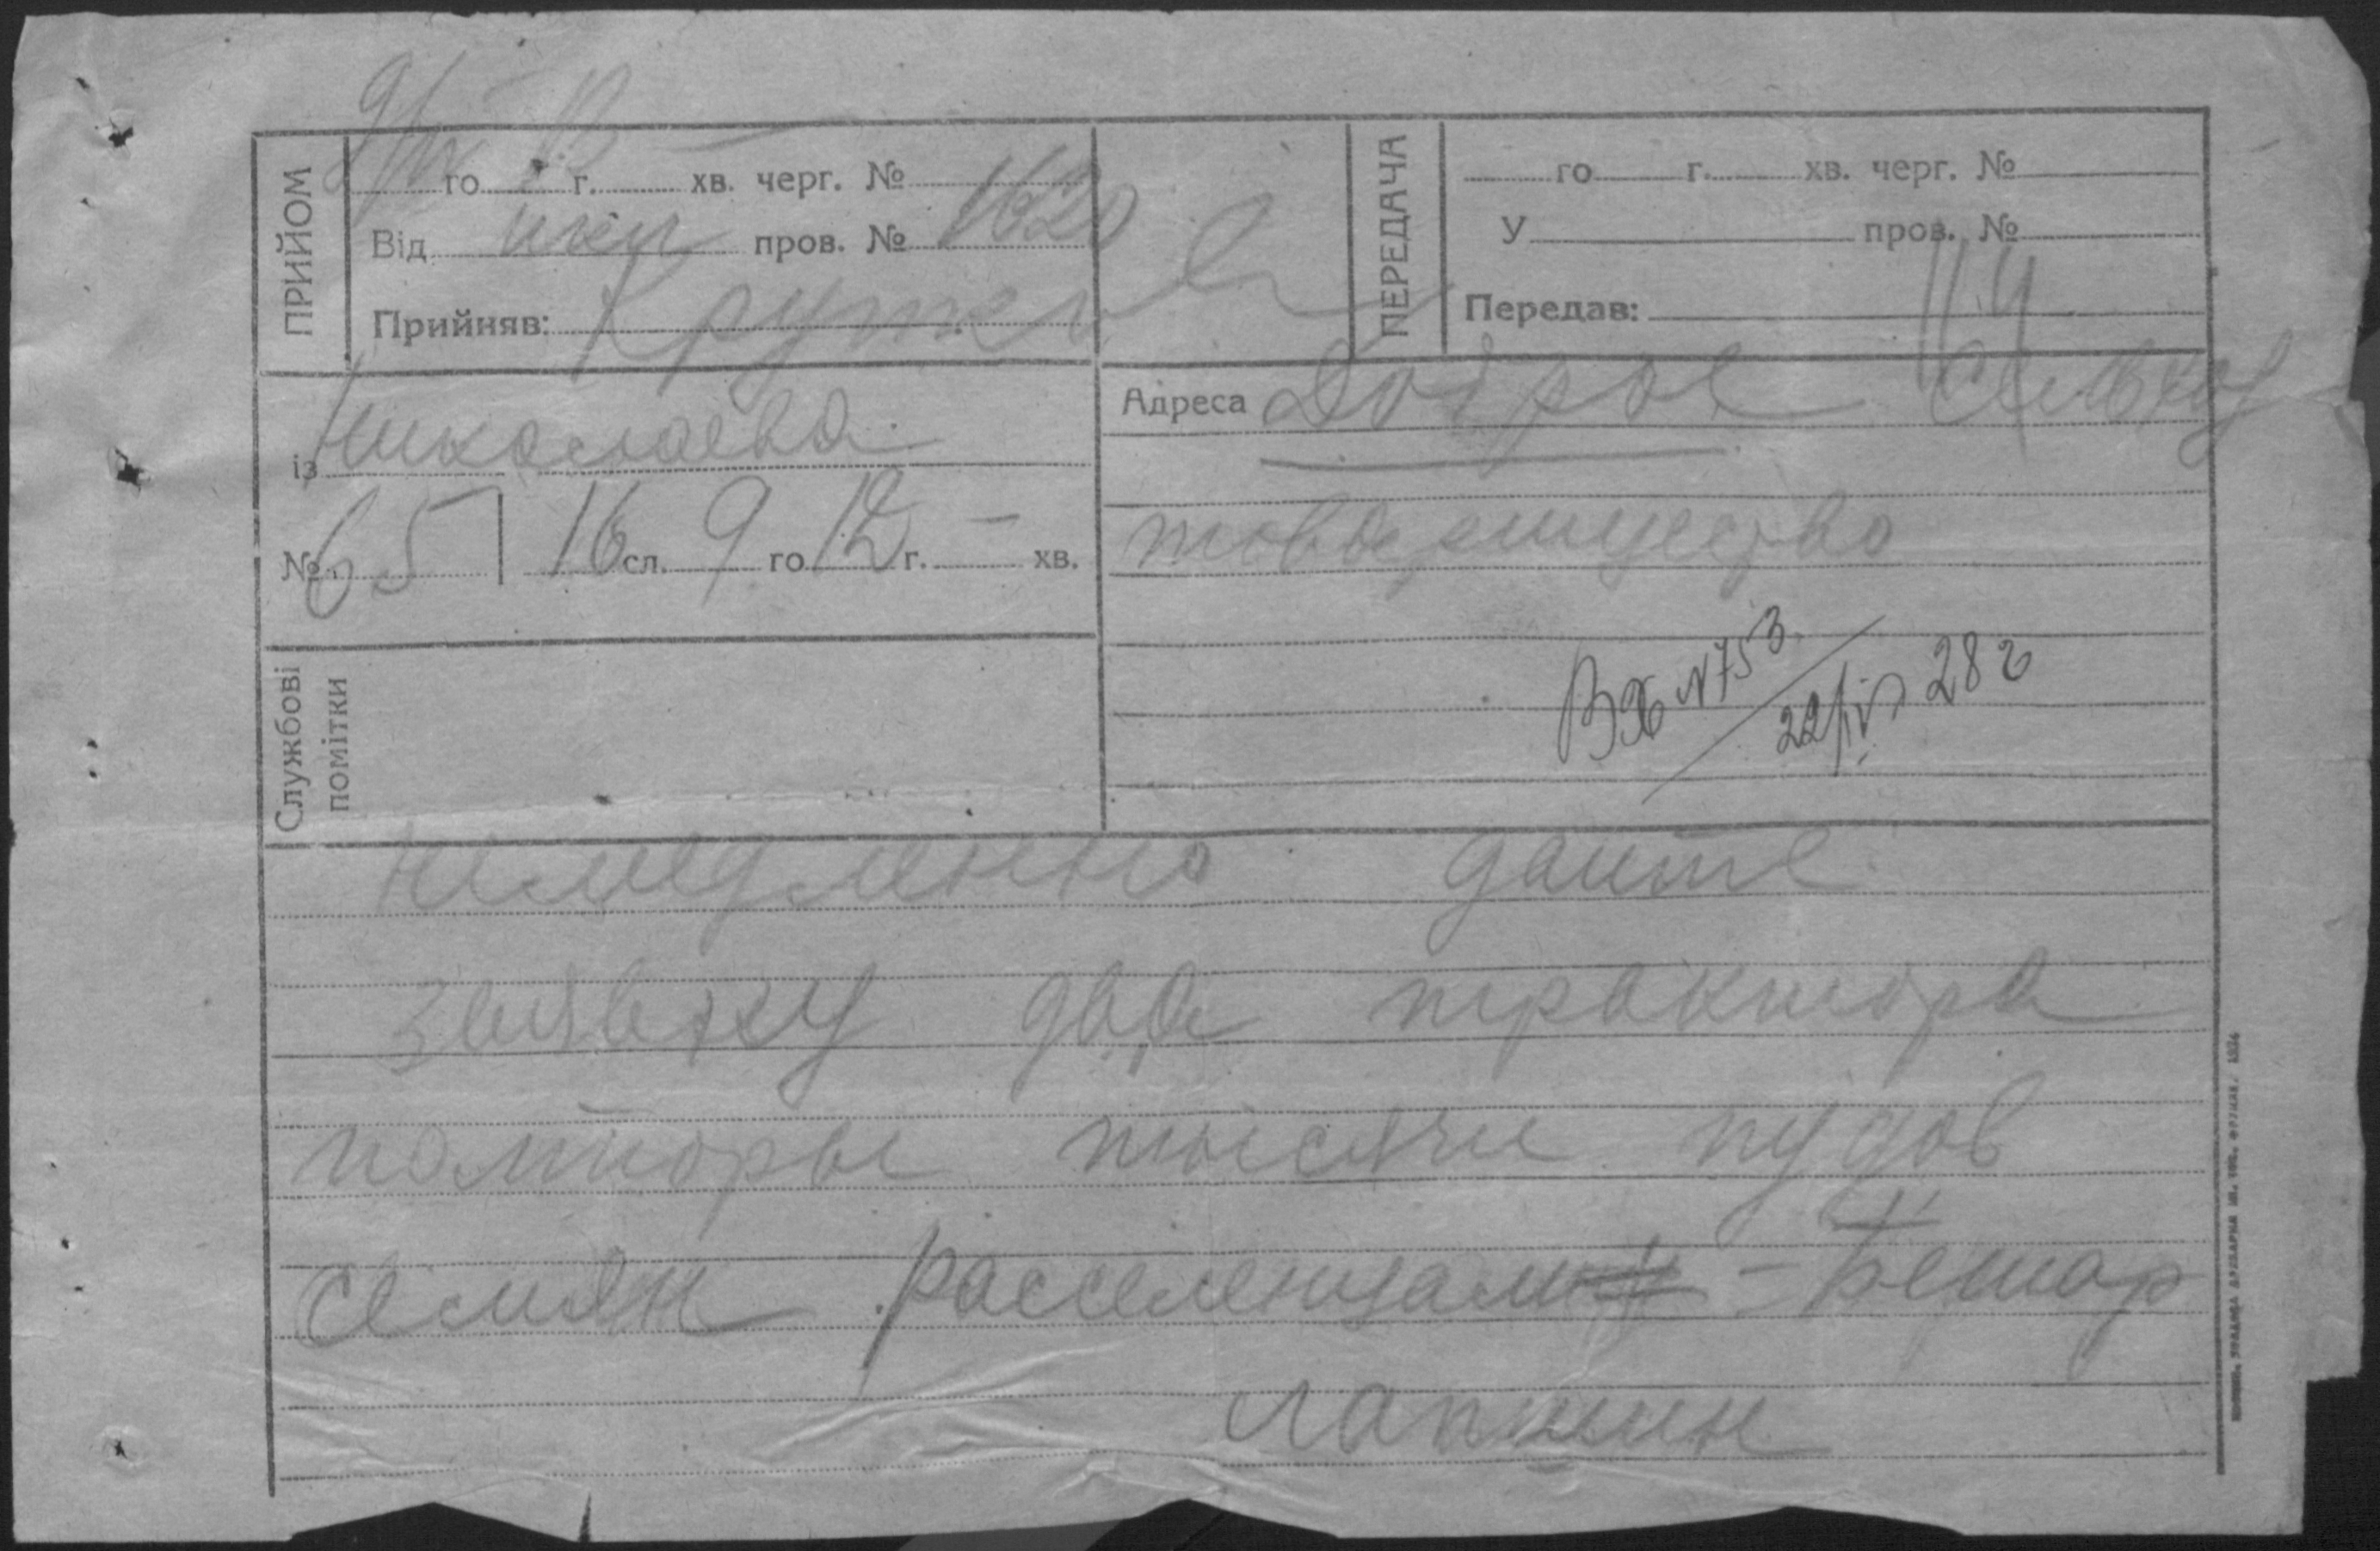 ПРИЙОМ
го г. хв. черг. №
Від нкл пров. № 1620
Прийняв:
ПЕРЕДАЧА
го г. хв. черг. №
У пров. №
Передав:
із Николаева
№ 65 16 сл. 9 го 12 г. — хв.
Адреса Доброе сельхоз
товарищество
Вх N 753
22/IV 28 г
Службові
помітки
Немедленно дайте
заявку два трактора
полторы тысячи пудов
семян расселенцам –
лапшин